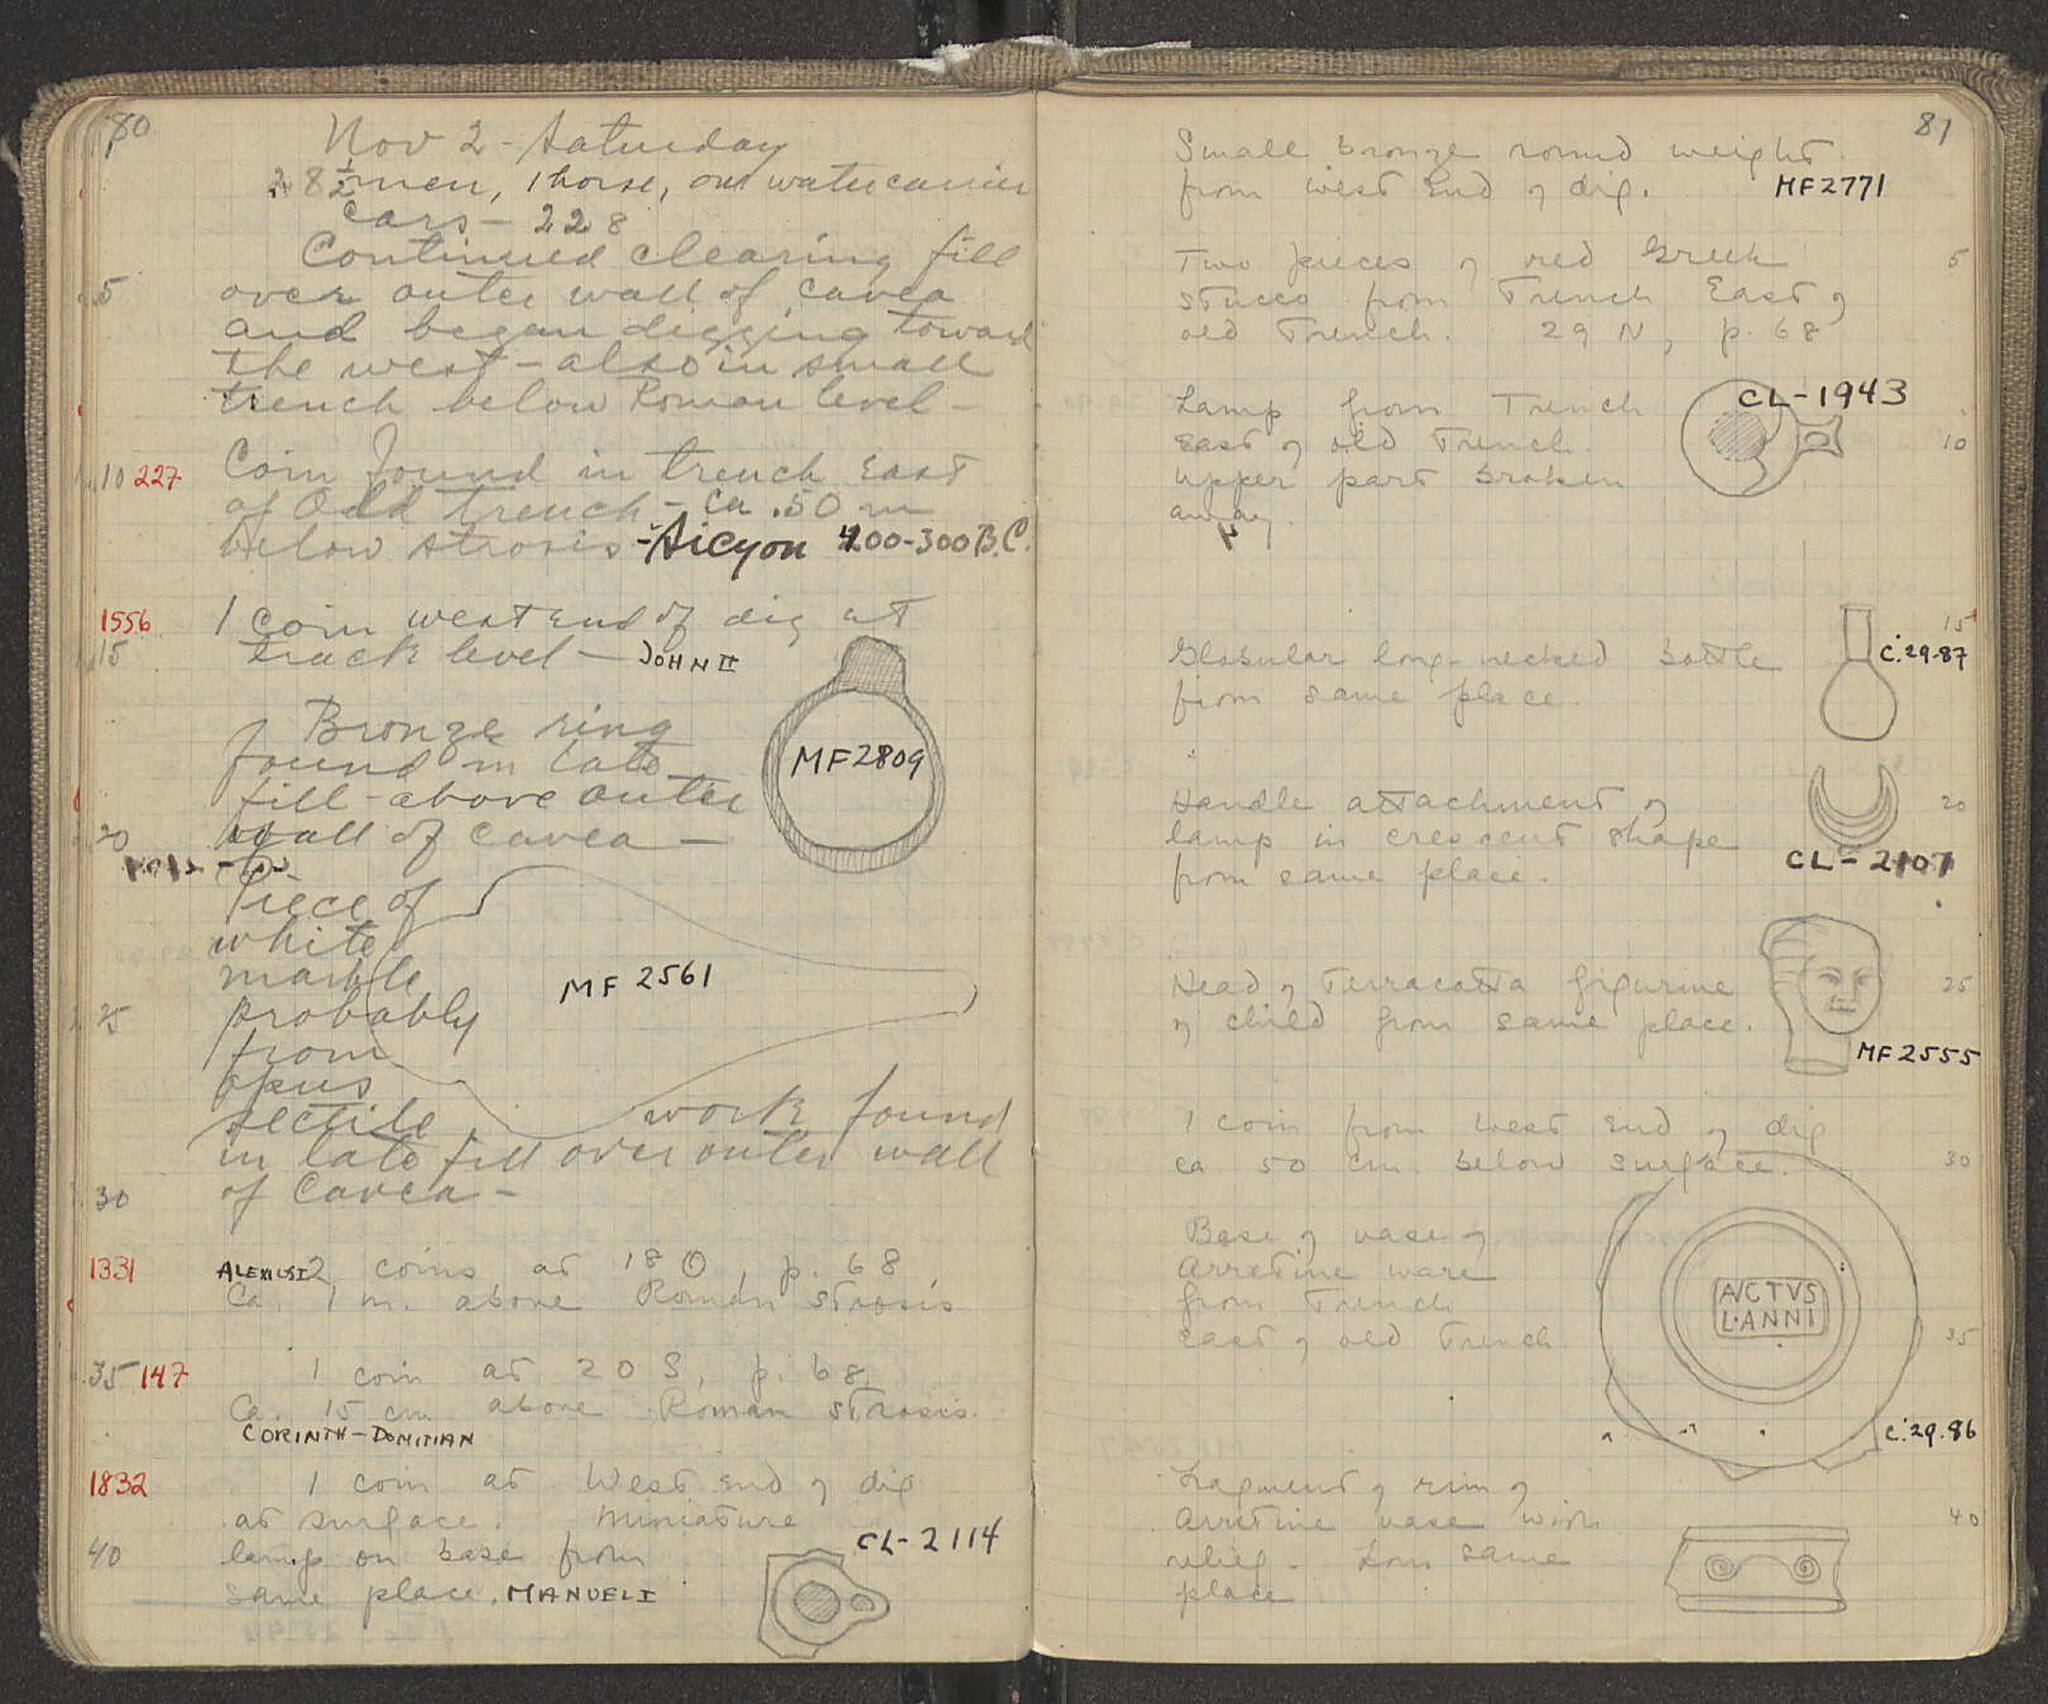 80
Nov 2 - Saturday
28½ men, 1 horse, one water carrier
Cars - 228
Continued clearing fill
5 over outer wall of cavea
and began digging toward
the west - also in small
trench below Roman level -
10 227 Coin found in trench East
of Old trench - ca .50 m
below strosis - Sicyon 400-300 B.C.
1556 1 coin west end of dig at
15 track level - JOHN II
Bronze ring
found in late
fill - above outer
20 wall of cavea -
MF2809
Piece of
white
marble
25 probably
from
opus
sectile work found
in late fill over outer wall
30 of Cavea -
MF 2561
1331 ALEXIUS I 2 coins at 18 O, p. 68,
Ca. 1 m. above Roman strosis
35 147 1 coin at 20 S, p. 68
Ca. 15 cm above Roman strosis.
CORINTH - DOMITIAN
1832 1 coin at West End of dig
at surface. Miniature
40 lamp on base from
same place. MANUEL I
CL-2114
81
Small bronze round weight
from West End of dig. MF2771
Two pieces of red Greek 5
stucco from Trench East of
old Trench. 29 N, p. 68
Lamp from Trench CL-1943
East of old Trench. 10
Upper part broken
away.
15
Globular long-necked bottle C.29-87
from same place.
Handle attachment of 20
lamp in crescent shape
from same place.
CL-2107
Head of Terracotta figurine 25
of child from same place.
MF2555
1 coin from West End of dig
ca 50 cm. below surface. 30
Base of vase of
Arretine ware
from Trench
East of old Trench. 35
AVCTVS
L·ANNI
C.29.86
Fragment of rim of
Arretine vase with 40
relief - from same
place